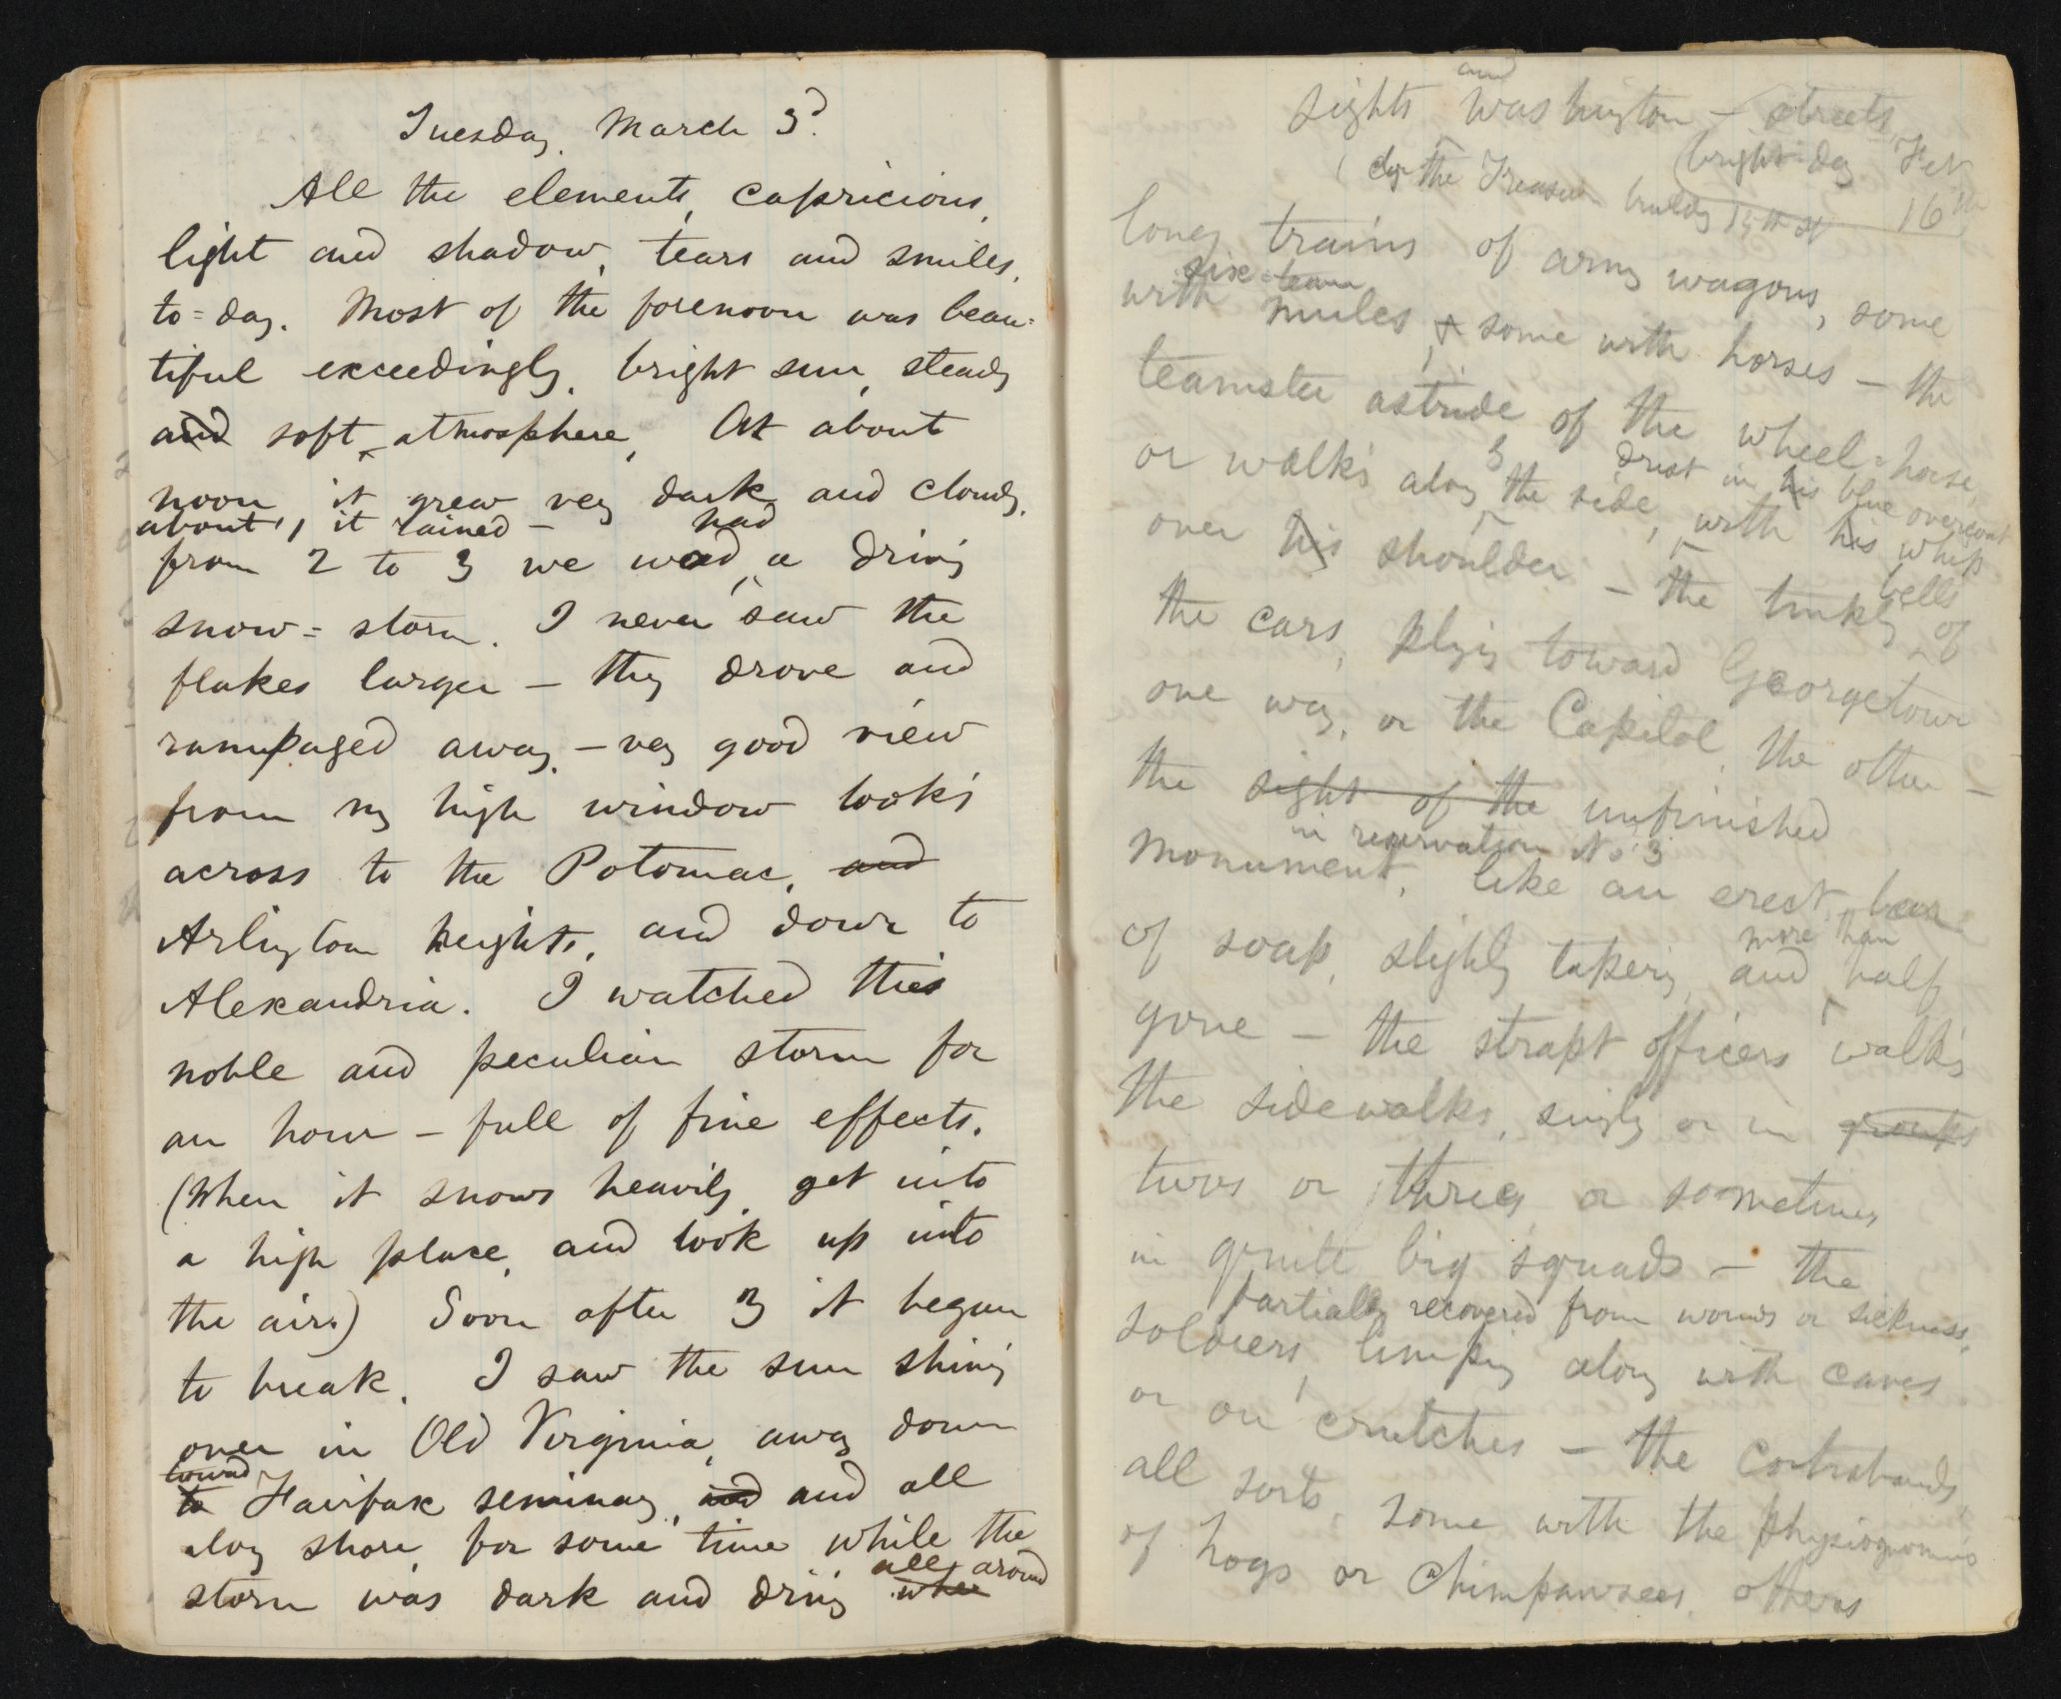 Tuesday, March 3d.
All the elements, capricious,
light and shadow, tears and smiles,
to=day. Most of the forenoon was beau=
tiful exceedingly, bright sun, steady
and soft atmosphere, At about
noon it grew very dark and cloudy,
about 1, it rained —
had
from 2 to 3 we had a driving
snow=storm. I never saw the
flakes larger — they drove and
rampaged away, — very good view
from my high window looking
across to the Potomac, and
Arlington heights, and down to
Alexandria. I watched this
noble and peculiar storm for
an hour — full of fine effects.
(When it snows heavily get into
a high place, and look up into
the air.) Soon after 3 it began
to break. I saw the sun shining
over in Old Virginia, away down
toward
to Fairfax seminary, and and all
along shore, for some time while the
all around
storm was dark and driving when
and
sights Washington — streets,
(bright day Feb
(by the Treasury building 15th st 16th
long trains of army wagons, some
six=team
with mules, & some with horses — the
teamster astride of the wheel=horse,
drest in his blue overcoat
or walking along by the side, with his whip
over his shoulder — the tinkling of
bells
the cars, plying toward Georgetown
one way, or the Capitol, the other —
the sight of the unfinished
in reservation No 3
monument, like an erect bar
of soap, slightly tapering, and half
more than
gone — the strapt officers walking
the sidewalks, singly or in groups
twos or threes or sometimes
in quite big squads — the
partially recovered from wounds or sickness,
soldiers, limping along with canes
or on crutches — the contrabands,
all sorts, some with the physiognomies
of hogs or chimpanzees, others